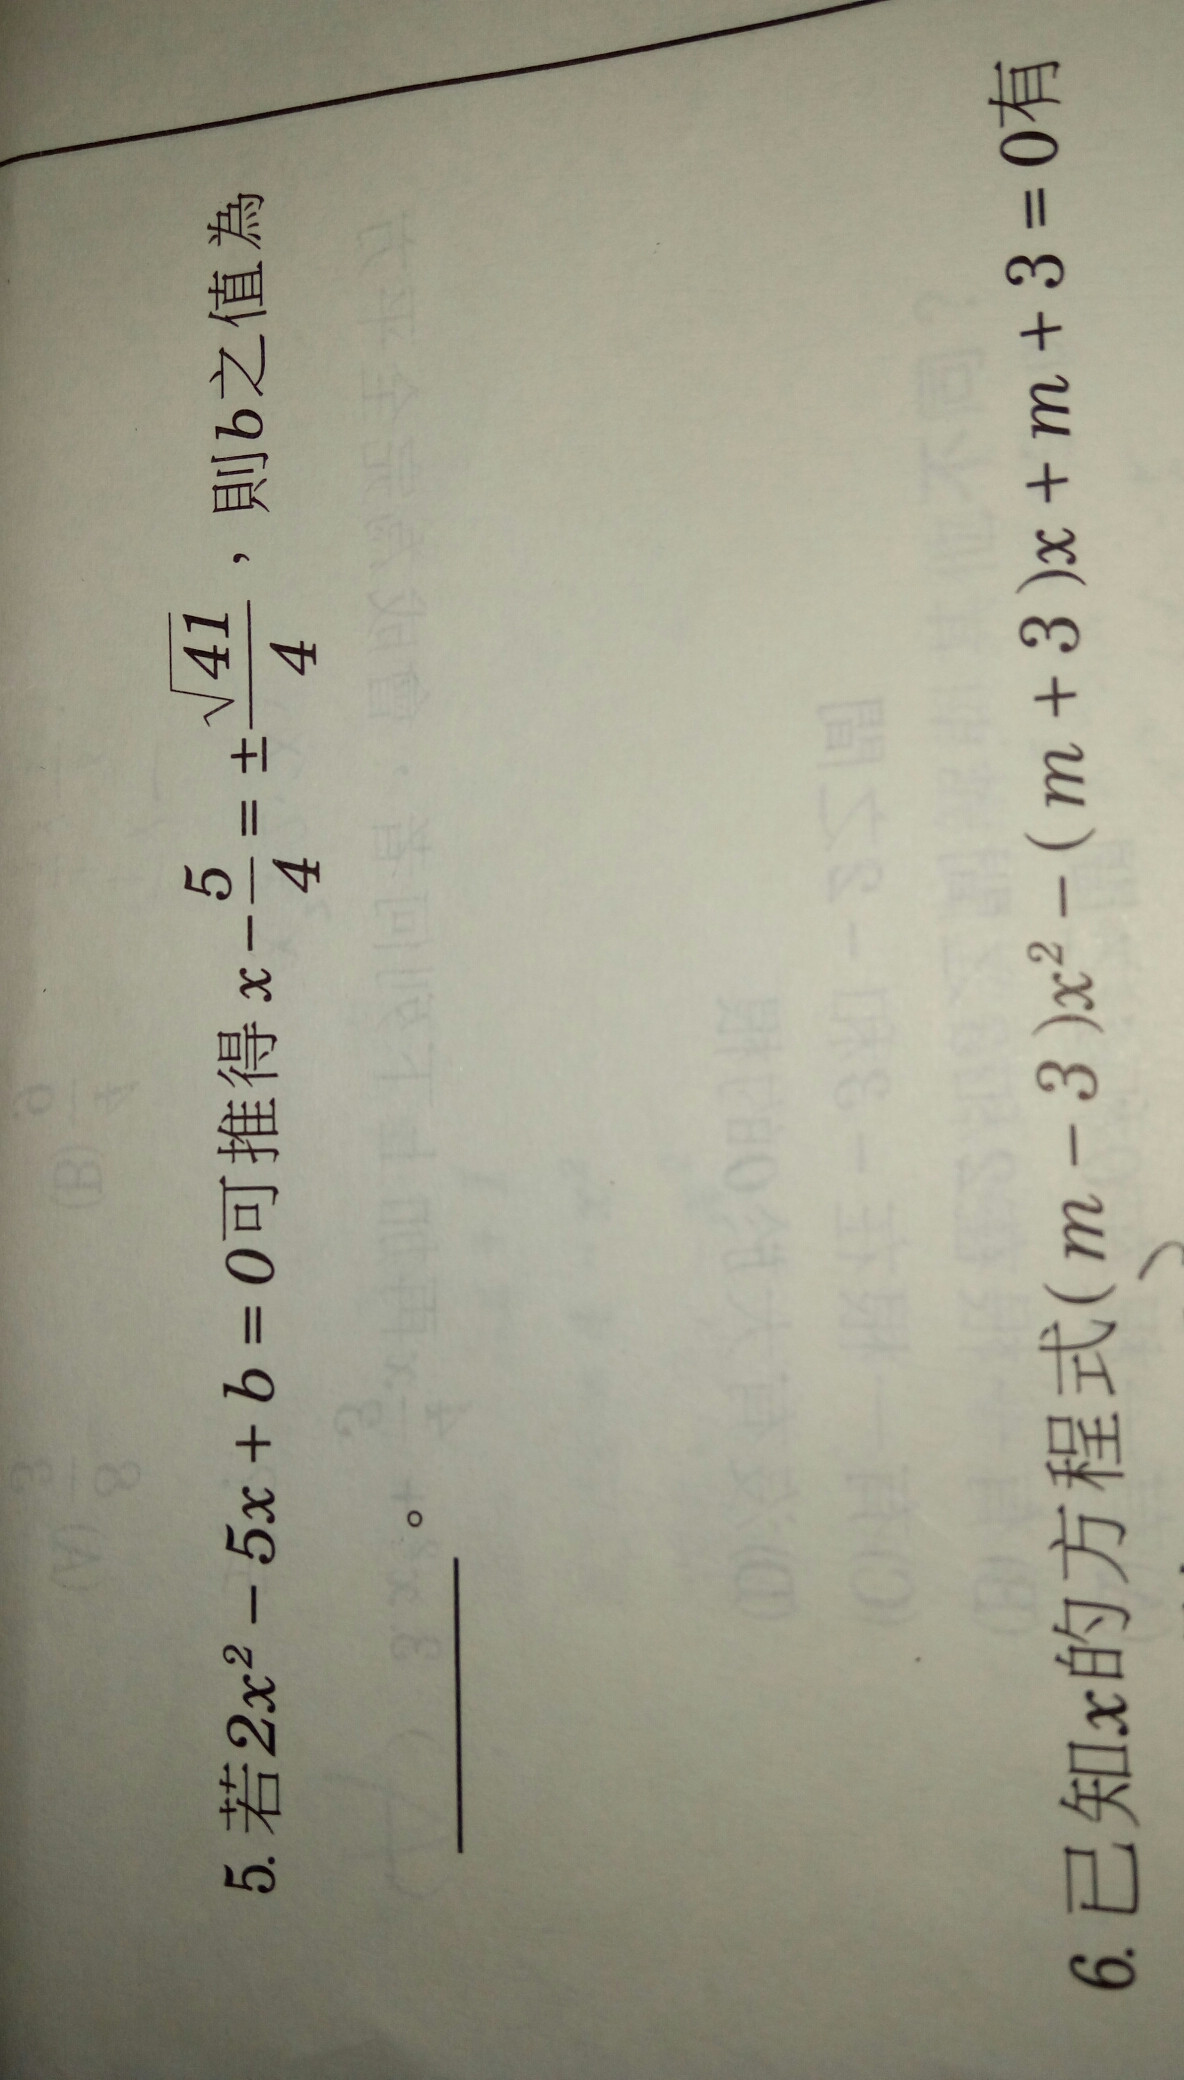 5. 若2x² - 5x + b = 0可推得 x - 5/4 = ±√41/4 ，則b之值為
＿＿＿＿。
6. 已知x的方程式( m - 3 )x² - ( m + 3 )x + m + 3 = 0有